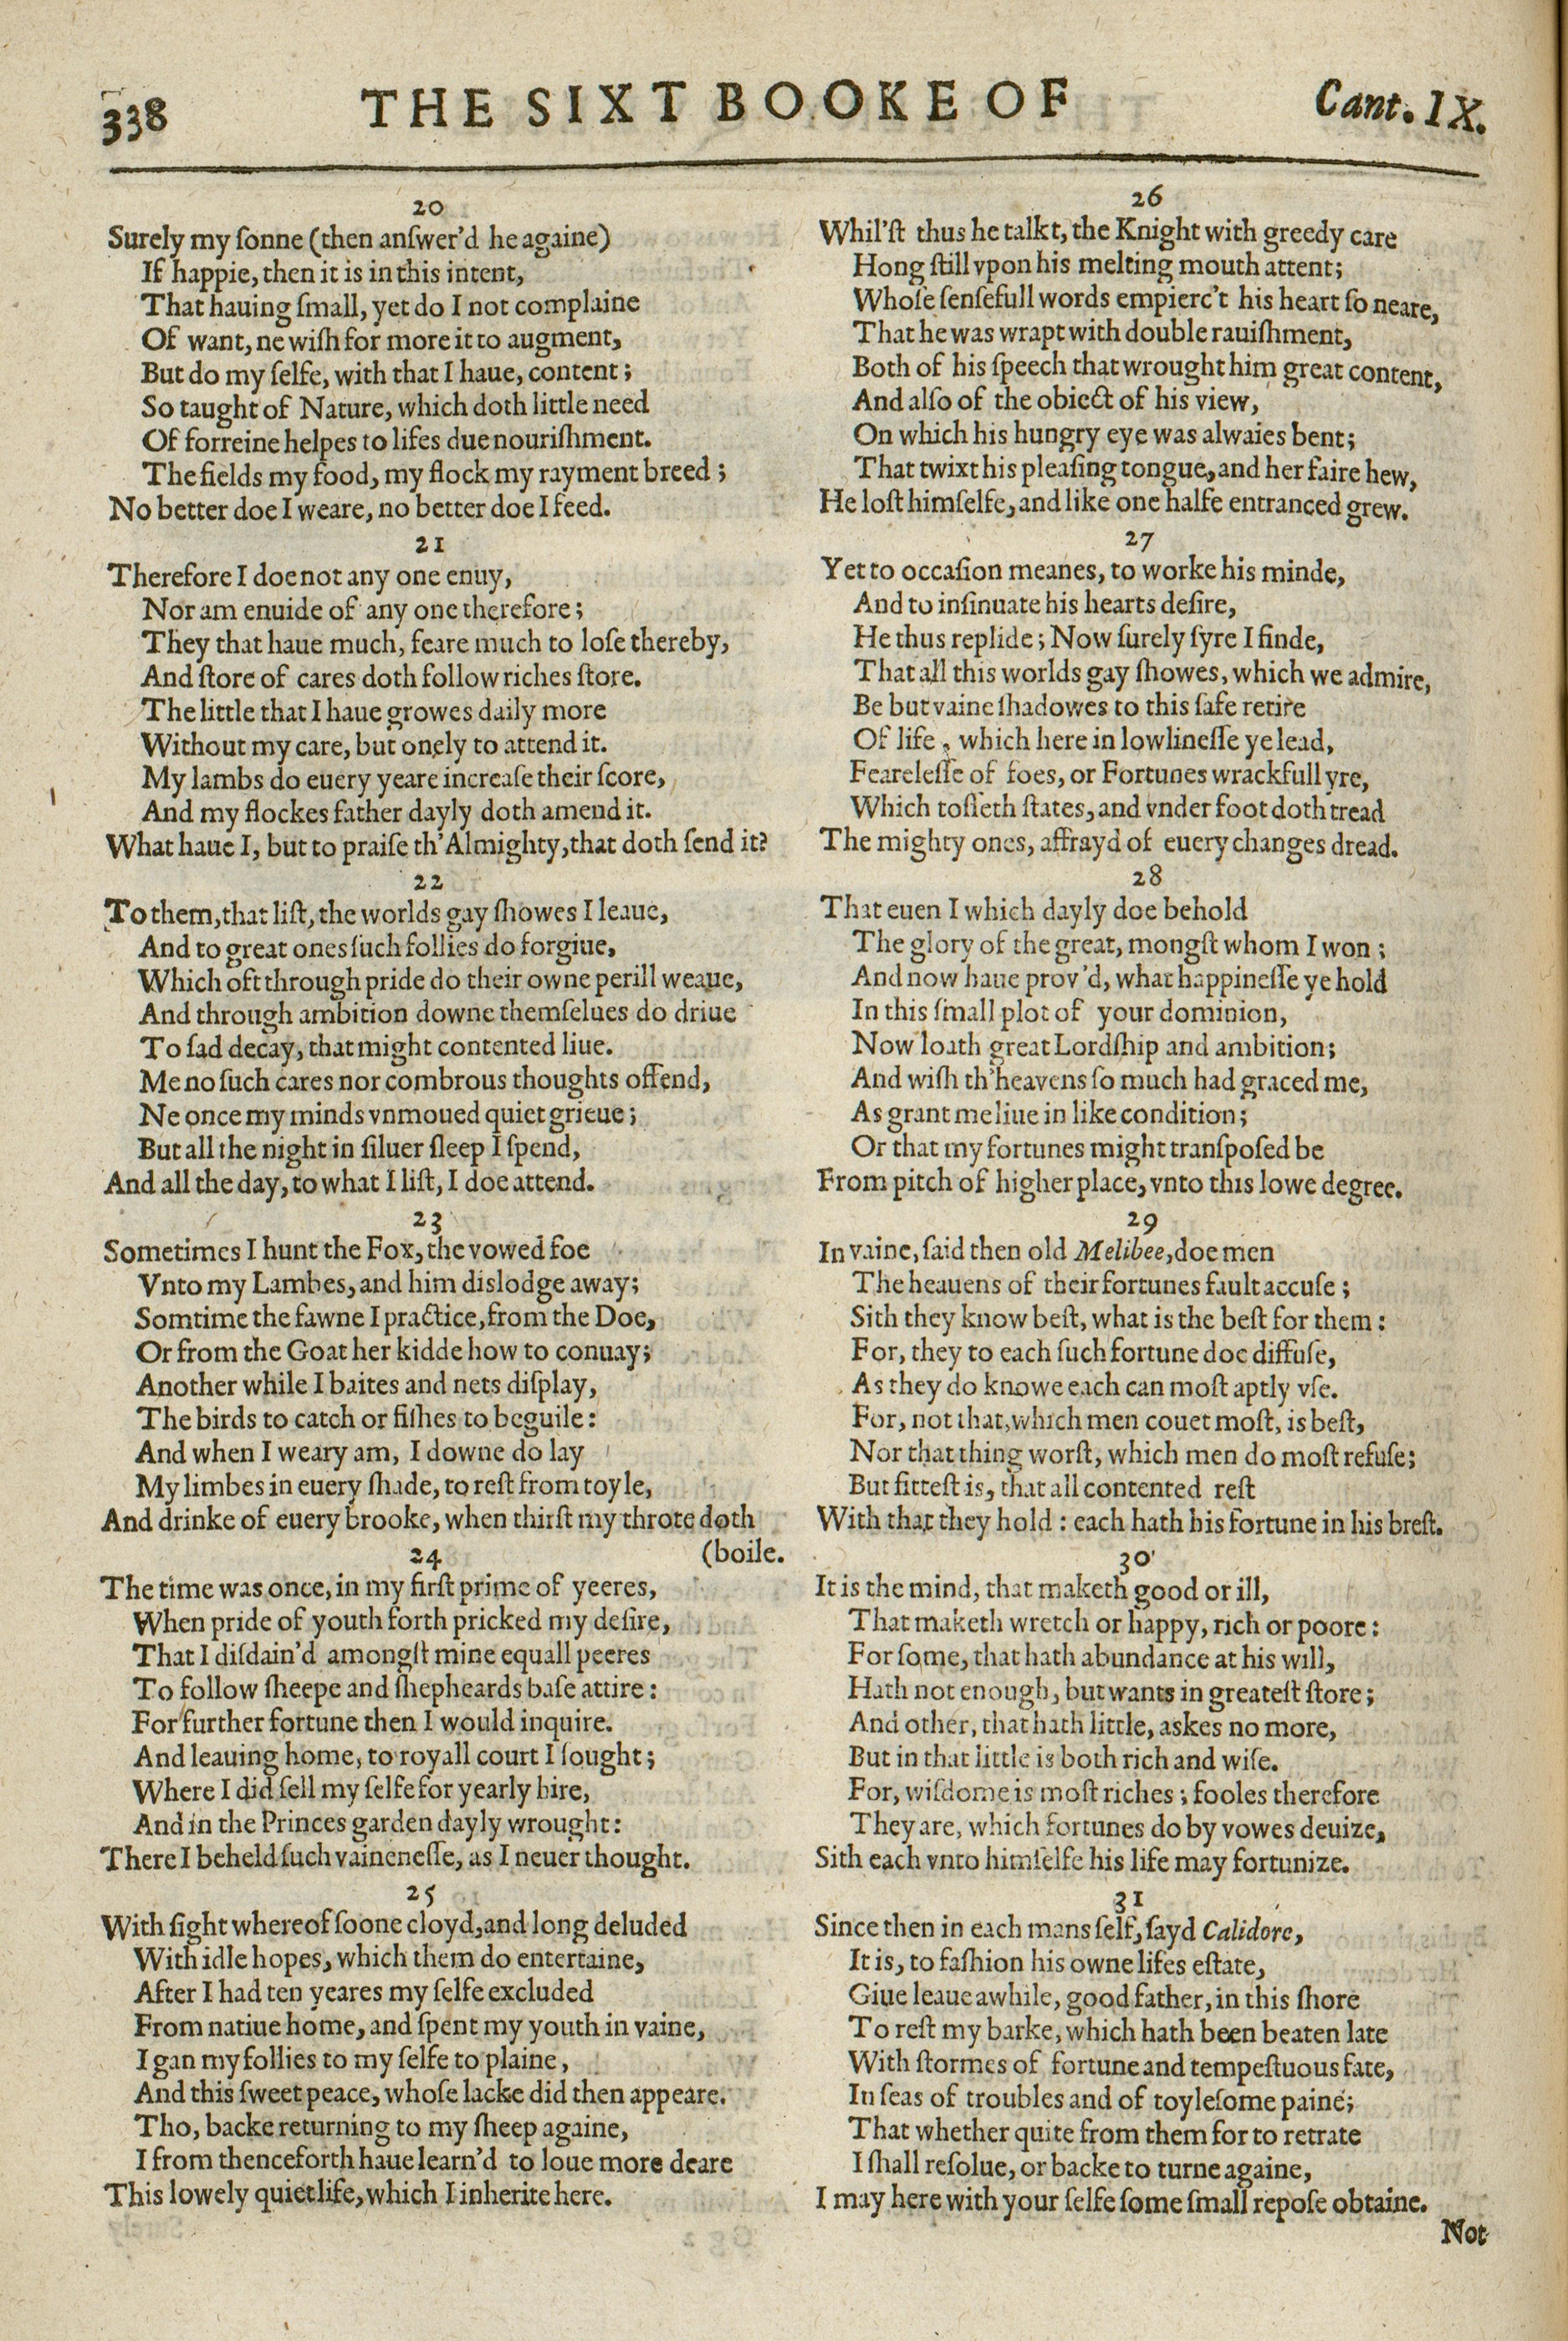 338 THE SIXT BOOKE OF Cant. IX.
20
Surely my ſonne (then anſwer'd he againe)
If happie, then it is in this intent,
That hauing ſmall, yet do I not complaine
Of want, ne wiſh for more it to augment,
But do my ſelfe, with that I haue, content;
So taught of Nature, which doth little need
Of forreine helpes to lifes due nouriſhment.
The fields my food, my flock my rayment breed;
No better doe I weare, no better doe I feed.
21
Therefore I doe not any one enuy,
Nor am enuide of any one therefore;
They that haue much, feare much to loſe thereby,
And ſtore of cares doth follow riches ſtore.
The little that I haue growes daily more
Without my care, but onely to attend it.
My lambs do euery yeare increaſe their ſcore,
And my flockes father dayly doth amend it.
What haue I, but to praiſe th'Almighty, that doth ſend it?
22
To them, that liſt, the worlds gay ſhowes I leaue,
And to great ones ſuch follies do forgiue,
Which oft through pride do their owne perill weaue,
And through ambition downe themſelues do driue
To ſad decay, that might contented liue.
Me no ſuch cares nor combrous thoughts offend,
Ne once my minds vnmoued quiet grieue;
But all the night in ſiluer ſleep I ſpend,
And all the day, to what I liſt, I doe attend.
23
Sometimes I hunt the Fox, the vowed foe
Vnto my Lambes, and him dislodge away;
Somtime the fawne I practice, from the Doe,
Or from the Goat her kidde how to conuay;
Another while I baites and nets diſplay,
The birds to catch or fiſhes to beguile:
And when I weary am, I downe do lay
My limbes in euery ſhade, to reſt from toyle,
And drinke of euery brooke, when thirſt my throte doth
(boile.
24
The time was once, in my firſt prime of yeeres,
When pride of youth forth pricked my deſire,
That I diſdain'd amongſt mine equall peeres
To follow ſheepe and ſhepheards baſe attire:
For further fortune then I would inquire.
And leauing home, to royall court I ſought;
Where I did ſell my ſelfe for yearly hire,
And in the Princes garden dayly wrought:
There I beheld ſuch vaineneſſe, as I neuer thought.
25
With ſight whereof ſoone cloyd, and long deluded
With idle hopes, which them do entertaine,
After I had ten yeares my ſelfe excluded
From natiue home, and ſpent my youth in vaine,
I gan my follies to my ſelfe to plaine,
And this ſweet peace, whoſe lacke did then appeare.
Tho, backe returning to my ſheep againe,
I from thenceforth haue learn'd to loue more deare
This lowely quiet life, which I inherite here.
26
Whil'ſt thus he talkt, the Knight with greedy care
Hong ſtill vpon his melting mouth attent;
Whoſe ſenſefull words empierc't his heart ſo neare,
That he was wrapt with double rauiſhment,
Both of his ſpeech that wrought him great content,
And alſo of the obiect of his view,
On which his hungry eye was alwaies bent;
That twixt his pleaſing tongue, and her faire hew,
He loſt himſelfe, and like one halfe entranced grew.
27
Yet to occaſion meanes, to worke his minde,
And to inſinuate his hearts deſire,
He thus replide; Now ſurely ſyre I finde,
That all this worlds gay ſhowes, which we admire,
Be but vaine ſhadowes to this ſafe retire
Of life, which here in lowlineſſe ye lead,
Feareleſſe of foes, or Fortunes wrackfull yre,
Which toſſeth ſtates, and vnder foot doth tread
The mighty ones, affrayd of euery changes dread.
28
That euen I which dayly doe behold
The glory of the great, mongſt whom I won;
And now haue prov'd, what happineſſe ye hold
In this ſmall plot of your dominion,
Now loath great Lordſhip and ambition;
And wiſh th'heavens ſo much had graced me,
As grant me liue in like condition;
Or that my fortunes might tranſpoſed be
From pitch of higher place, vnto this lowe degree.
29
In vaine, ſaid then old Melibee, doe men
The heauens of their fortunes fault accuſe;
Sith they know beſt, what is the beſt for them:
For, they to each ſuch fortune doe diffuſe,
As they do knowe each can moſt aptly vſe.
For, not that, which men couet moſt, is beſt,
Nor that thing worſt, which men do moſt refuſe;
But fitteſt is, that all contented reſt
With that they hold: each hath his fortune in his breſt.
30
It is the mind, that maketh good or ill,
That maketh wretch or happy, rich or poore:
For ſome, that hath abundance at his will,
Hath not enough, but wants in greateſt ſtore;
And other, that hath little, askes no more,
But in that little is both rich and wiſe.
For, wiſdome is moſt riches; fooles therefore
They are, which fortunes do by vowes deuize,
Sith each vnto himſelfe his life may fortunize.
31
Since then in each mans ſelf, ſayd Calidore,
It is, to faſhion his owne lifes eſtate,
Giue leaue awhile, good father, in this ſhore
To reſt my barke, which hath been beaten late
With ſtormes of fortune and tempeſtuous fate,
In ſeas of troubles and of toyleſome paine;
That whether quite from them for to retrate
I ſhall reſolue, or backe to turne againe,
I may here with your ſelfe ſome ſmall repoſe obtaine.
Not